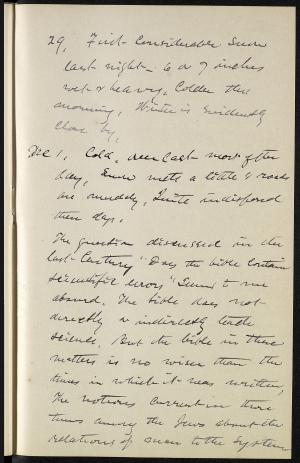 29, First considerable snow
last night - 6 or 7 inches
wet & heavy. Colder this
morning, Winter is evidently
close by.
Dec 1, Cold, over cast most of the
day, Snow melts a little & roads
are muddy, Quite indisposed
these days.
The question discussed in the
last Century "Does the bible Contain
scientific errors" seems to me
absurd. The bible does not
directly or indirectly teach
science. But the bible in these
matters is no wiser than the
times in which it was written,
The notions current in those
times among the Jews about the
relations of man to the system